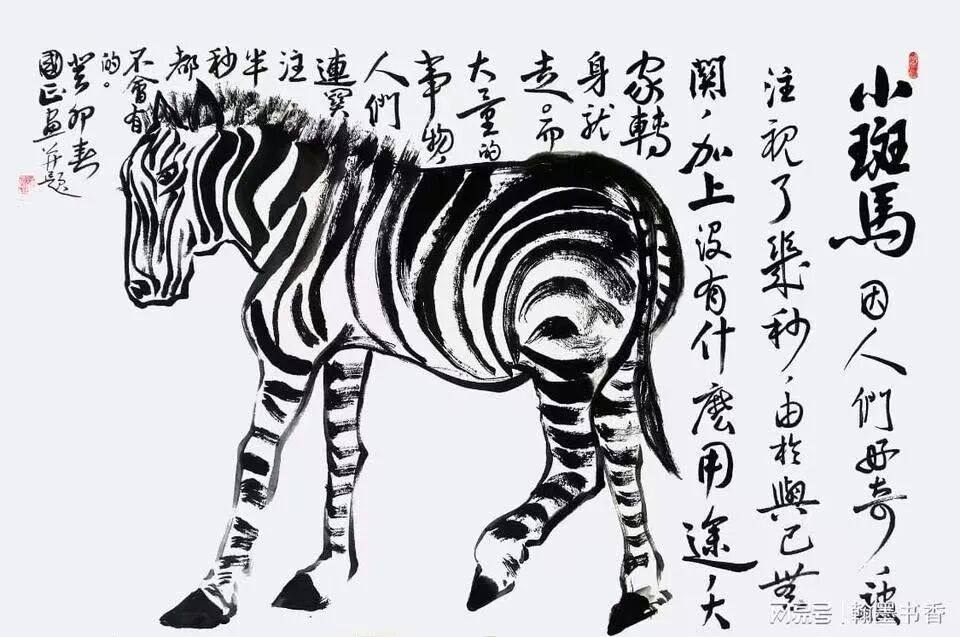 小斑馬 因人們好奇，被
注視了幾秒，由於與己無
關，加上沒有什麼用途，大
家轉
身就
走。而
大量的
事物，
人們
連
注
半
秒
都
不會有
的。
癸卯春
國正畫并題
搜狐号|翰墨书香